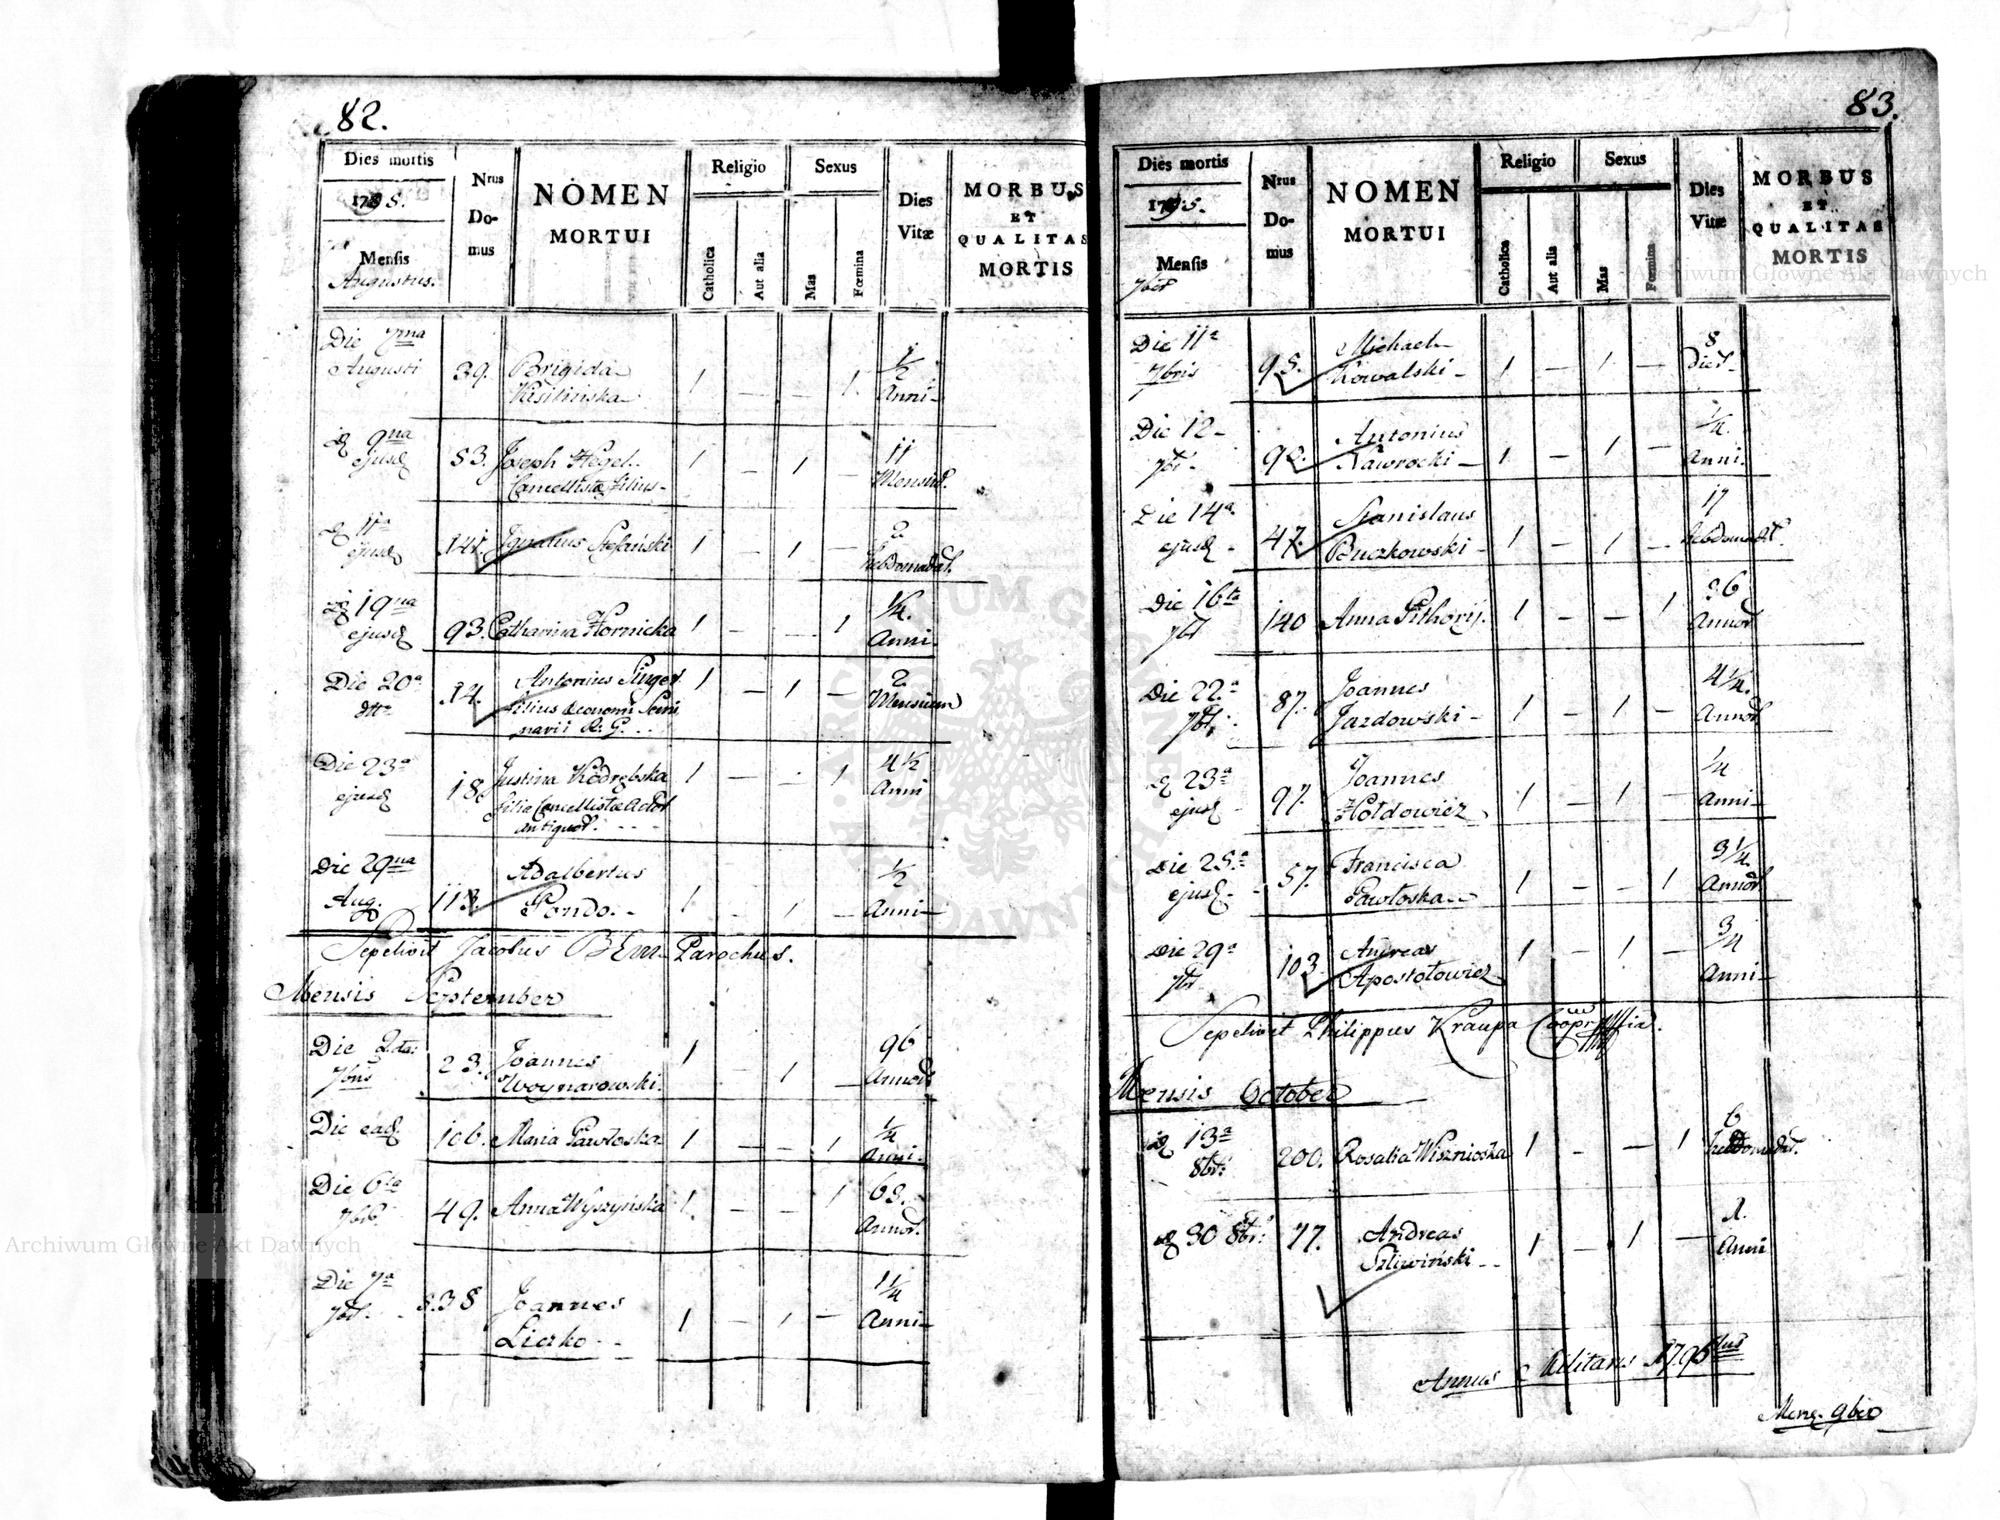 82.
Dies mortis
1795.
Mensis
Augustus.
Nrus
Do-
mus
NOMEN
MORTUI
Religio
Catholica
Aut alia
Sexus
Mas
Fœmina
Dies
Vitæ
MORBUS
ET
QUALITAS
MORTIS
Die 7ma
Augusti
39.
Brigida
Kisilinska
1 — — 1
½
Anni
9na
ejusd
83.
Joseph Hegel
Cancellista filius
1 — 1 —
11
Mensiu.
11a
ejusd
141.
Ignatius Stefański
1 — 1 —
2
hebdomadar.
19na
ejusd
93.
Catharina Hornicka
1 — — 1
¼.
Anni.
Die 20a
dtto
14.
Antonius Singer
filius Œconomi Semi
narii R. G.
1 — 1 —
2
Mensium
Die 23a
ejusd
18.
Justina Kodrębska
filia Cancellistæ Actor
antiquor.
1 — — 1
4½
Anni
Die 29na
Aug.
113.
Adalbertus
Pondo.
1 — 1 —
½
Anni
Sepelivit Jacobus Bem Parochus.
Mensis September
Die 2da
7bris
23.
Joannes
Woynarowski.
1 — 1 —
96
Annor
Die ead
106.
Maria Pawłoska
1 — — 1
¼
Anni.
Die 6ta
7br.
49.
Anna Wyszyńska
1 — — 1
63.
Annor.
Die 7a
7br.
Joannes
Liczko
1 — 1 —
1¼
Anni
83.
Dies mortis
1795.
Mensis
7ber
Nrus
Do-
mus
NOMEN
MORTUI
Religio
Catholica
Aut alia
Sexus
Mas
Fœmina
Dies
Vitæ
MORBUS
ET
QUALITAS
MORTIS
Die 11a
7bris
95.
Michael
Kowalski
1 — 1 —
8
Dier.
Die 12
7br.
92.
Antonius
Nawrocki
1 — 1 —
¼.
Anni.
Die 14a
ejusd
47.
Stanislaus
Buczkowski
1 — 1 —
17
hebdomadar.
Die 16ta
7br
140
Anna Pithory.
1 — — 1
26
Annor
Die 22a
7br.
87.
Joannes
Jazdowski
1 — 1 —
4¼.
Annor
23a
ejusd
97.
Joannes
Hołdowicz
1 — 1 —
¼
Anni
Die 25a
ejusd
57.
Francisca
Pawłoska
1 — — 1
3¼.
Annor.
Die 29a
7br
103.
Andreas
Apostołowicz
1 — 1 —
¾
Anni
Sepelivit Philippus Kraupa Coopr
Mensis October
13a
8br.
200.
Rosalia Wisznioska
1 — — 1
6
hebdomadar.
30 8br.
77.
Andreas
Szliwiński
1 — 1 —
Anni
Annus Militaris 1796tus
Mens. 9ber
Archiwum Główne Akt Dawnych
Archiwum Główne Akt Dawnych